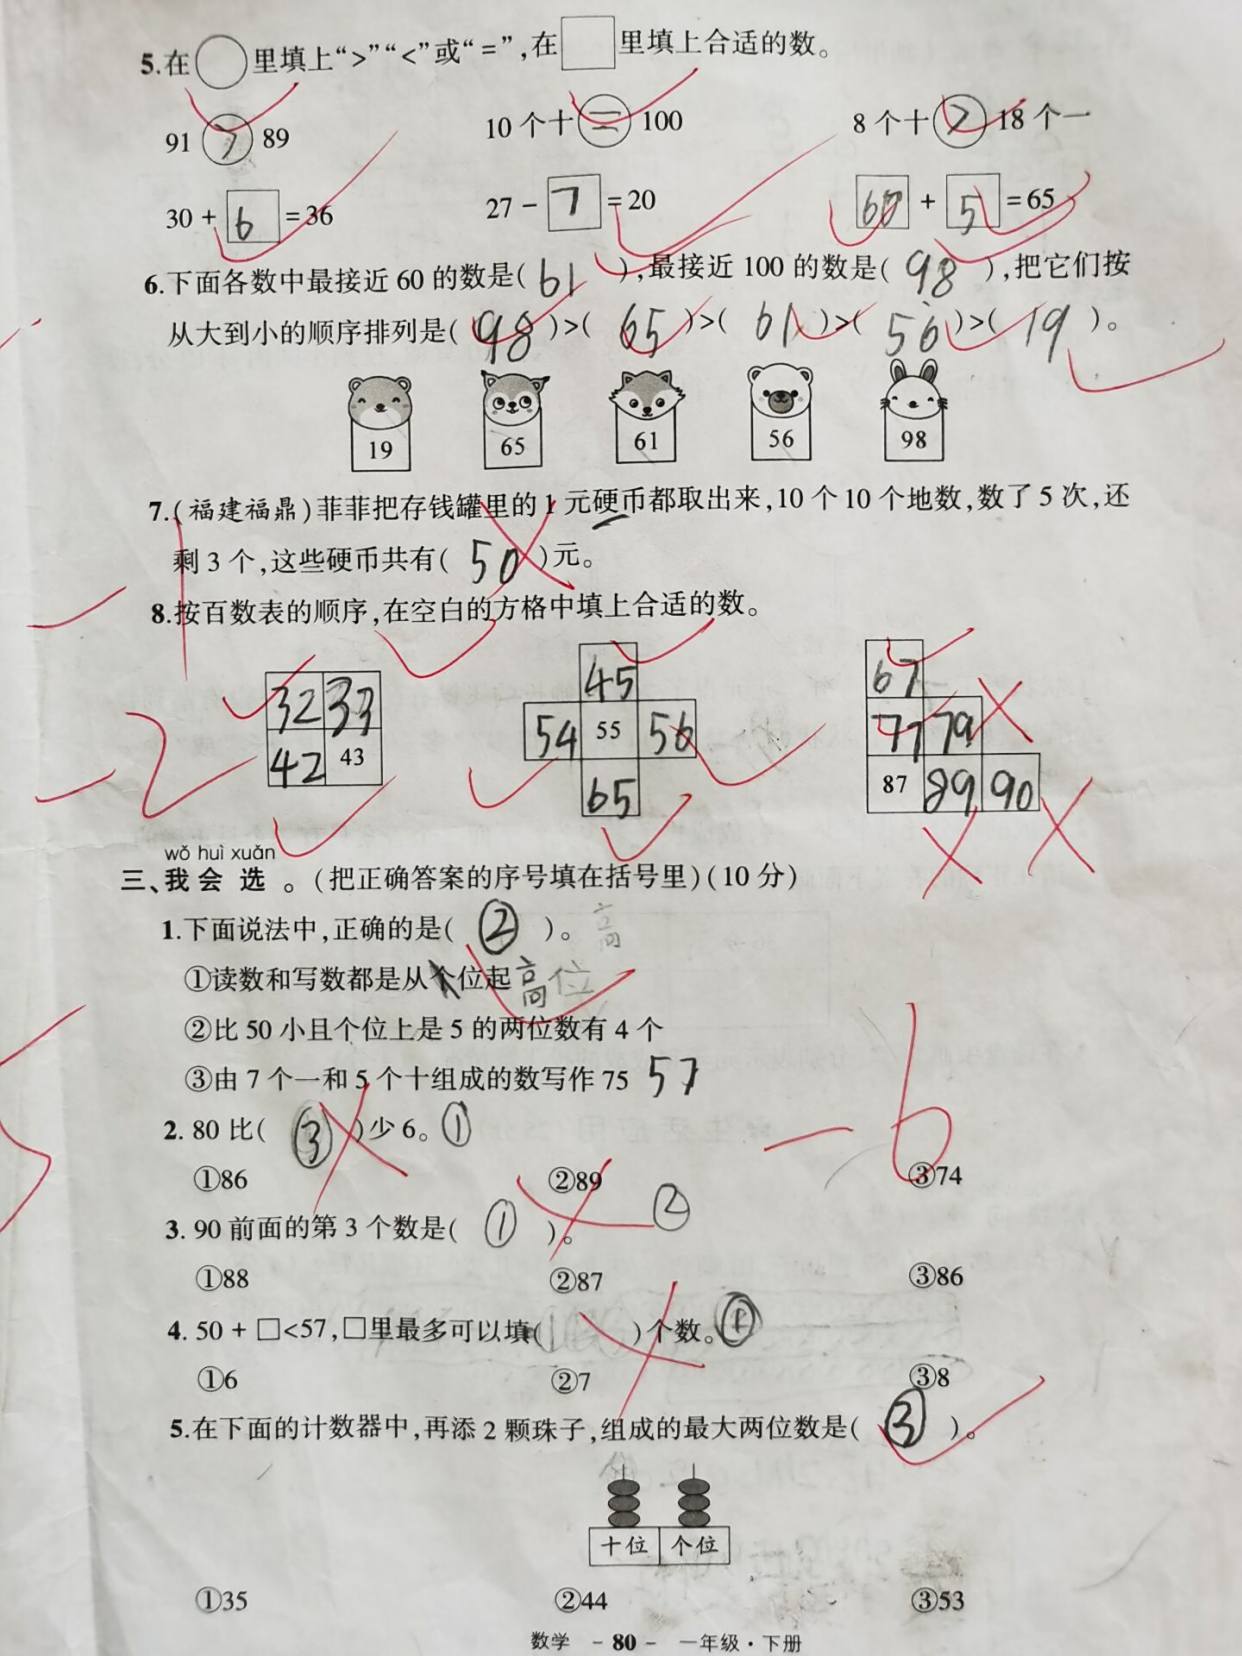 5.在○里填上“>”“<”或“=”,在□里填上合适的数。
91 > 89 10个十 = 100 8个十 > 18个一
30 + 6 = 36 27 - 7 = 20 60 + 5 = 65
6.下面各数中最接近60的数是( 61 ),最接近100的数是( 98 ),把它们按
从大到小的顺序排列是( 98 )>( 65 )>( 61 )>( 56 )>( 19 )。
19 65 61 56 98
7.(福建福鼎)菲菲把存钱罐里的1元硬币都取出来,10个10个地数,数了5次,还
剩3个,这些硬币共有( 50 )元。
-1
8.按百数表的顺序,在空白的方格中填上合适的数。
45 67
32 33 54 55 56 77 79
42 43 65 87 89 90
-2
wǒ huì xuǎn
三、我会选。(把正确答案的序号填在括号里)(10分)
1.下面说法中,正确的是( ② )。 高
①读数和写数都是从个位起 高位
②比50小且个位上是5的两位数有4个
③由7个一和5个十组成的数写作75 57
-6
2. 80比( ③ )少6。①
①86 ②89 ③74
3. 90前面的第3个数是( ① )。 ②
①88 ②87 ③86
4. 50 + □<57,□里最多可以填( )个数。①
①6 ②7 ③8
5.在下面的计数器中,再添2颗珠子,组成的最大两位数是( ③ )。
十位 个位
①35 ②44 ③53
数学 - 80 - 一年级·下册